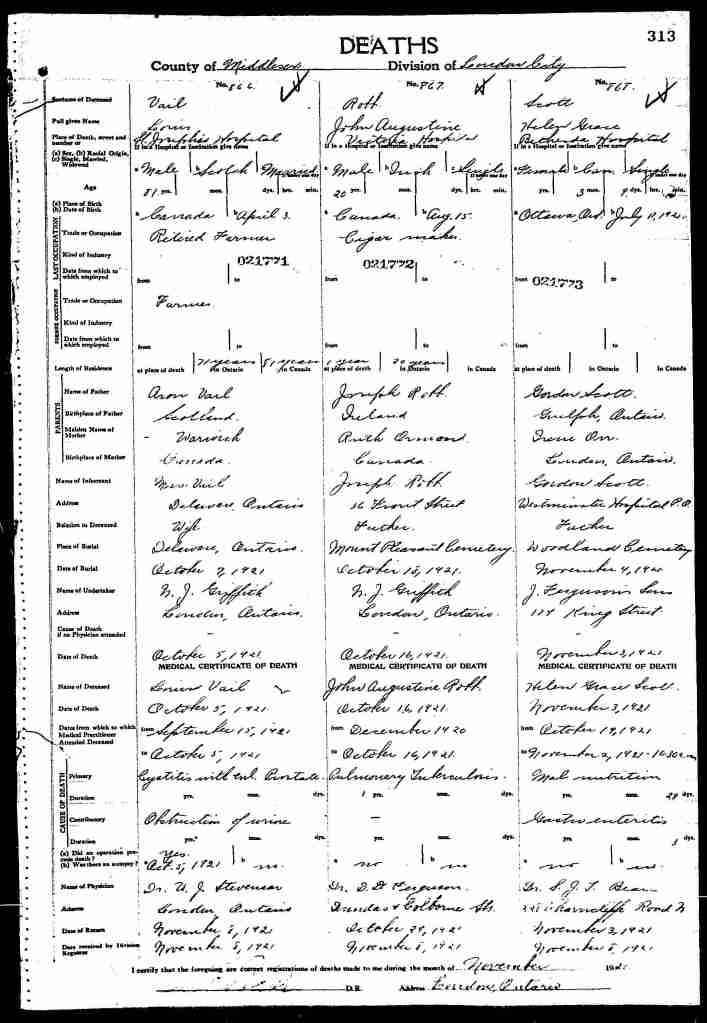 313
DEATHS
County of Middlesex Division of London City
No. 866. No. 867. No. 868.
Surname of Deceased Vail Robb. Scott
Full given Name Louis John Augustine Helen Grace
Place of Death, street and number or St Joseph's Hospital Victoria Hospital Hospital
If in a Hospital or Institution give name If in a Hospital or Institution give name If in a Hospital or Institution give name
(a) Sex, (b) Racial Origin, (c) Single, Married, Widowed a Male b Scotch c Married a Male b Irish c Single a Female b Can. c Single
Age 81 yrs. mos. dys. hrs. min. 20 yrs. mos. dys. hrs. min. yrs. 3 mos. 9 dys. hrs. min.
(a) Place of Birth (b) Date of Birth a Canada b April 3. a Canada. b Aug. 15. a Ottawa Ont. b July 11, 1921
LAST OCCUPATION
Trade or Occupation Retired Farmer Cigar maker.
Kind of Industry 021771 021772 021773
Date from which to which employed from to from to from to
FORMER OCCUPATION
Trade or Occupation Farmer
Kind of Industry
Date from which to which employed from to from to from to
Length of Residence 71 years 81 years 1 year 20 years
at place of death in Ontario in Canada at place of death in Ontario in Canada at place of death in Ontario in Canada
PARENTS
Name of Father Aron Vail Joseph Robb. Gordon Scott.
Birthplace of Father Scotland. Ireland Guelph, Ontario.
Maiden Name of Mother - Warwick Ruth Ormond. Irene Orr.
Birthplace of Mother Canada. Canada. London, Ontario.
Name of Informant Mrs. Vail Joseph Robb Gordon Scott.
Address Delaware, Ontario 16 Front Street Westminster Hospital P.O.
Relation to Deceased Wife Father. Father
Place of Burial Delaware, Ontario. Mount Pleasant Cemetery. Woodland Cemetery
Date of Burial October 7, 1921 October 18, 1921. November 4, 1921
Name of Undertaker N. J. Griffith N. J. Griffith J. Ferguson's Sons
Address London, Ontario. London, Ontario. 174 King Street.
Cause of Death if no Physician attended - - -
Date of Death October 5, 1921 October 16, 1921. November 3, 1921
MEDICAL CERTIFICATE OF DEATH MEDICAL CERTIFICATE OF DEATH MEDICAL CERTIFICATE OF DEATH
Name of Deceased Louis Vail John Augustine Robb. Helen Grace Scott.
Date of Death October 5, 1921 October 16, 1921. November 3, 1921
Dates from which to which Medical Practitioner Attended Deceased from September 15, 1921 from December 1920 from October 19, 1921
to October 5, 1921 to October 16, 1921. to November 2, 1921 -
CAUSE OF DEATH
Primary Cystitis with enl. Prostate. Pulmonary Tuberculosis. Mal nutrition
Duration yrs. mos. dys. 1 yrs. mos. dys. yrs. mos. 28 dys.
Contributory Obstruction of urine - Gastro enteritis
Duration yrs. mos. dys. yrs. mos. dys. yrs. mos. 3 dys.
(a) Did an operation precede death? (b) Was there an autopsy? a Yes. Oct. 5, 1921 b no. a no b no a no b no
Name of Physician Dr. W. J. Stevenson Dr. D. D. Ferguson. Dr. S. J. T. Bean
Address London, Ontario Dundas & Colborne Sts. Wharncliffe Road N
Date of Return November 8, 1921 October 29, 1921 November 3, 1921
Date received by Division Registrar November 8, 1921 November 8, 1921 November 8, 1921
I certify that the foregoing are correct registrations of deaths made to me during the month of November 1921
D.R. Address London, Ontario